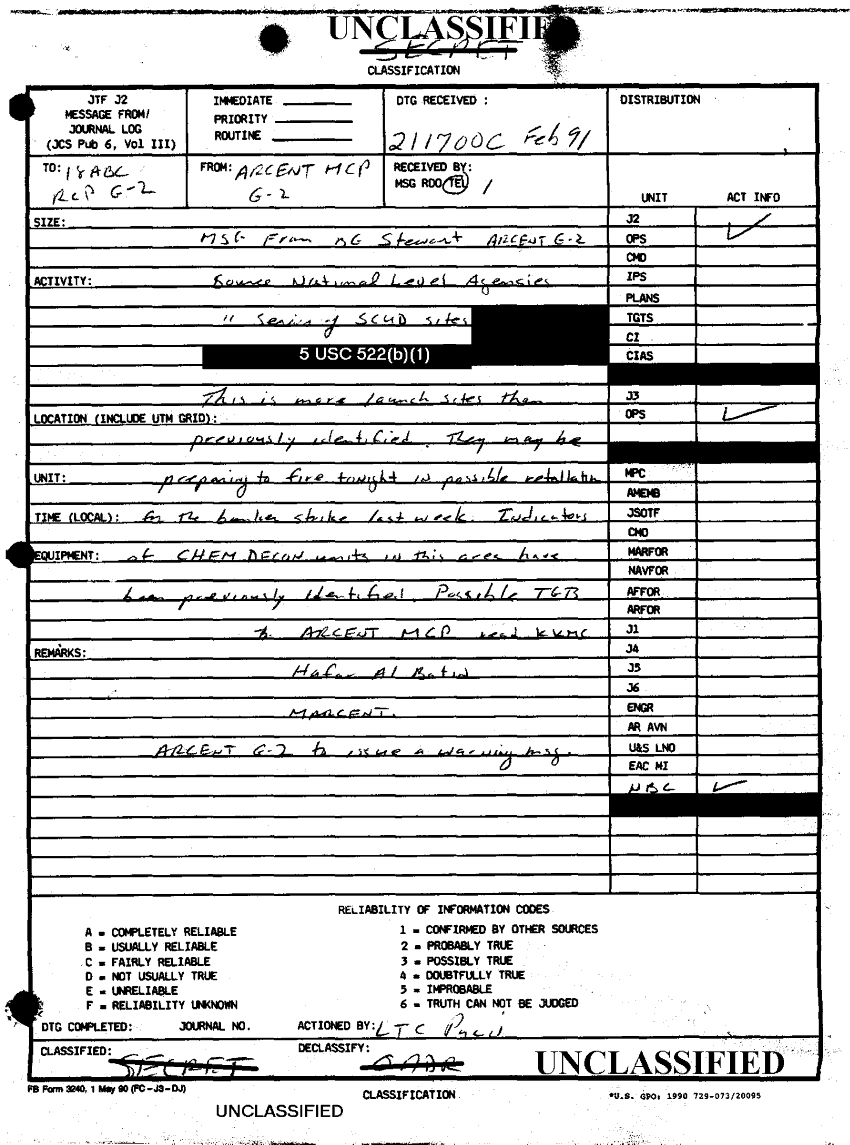 UNCLASSIFIED
SECRET
CLASSIFICATION
JTF J2
MESSAGE FROM/
JOURNAL LOG
(JCS Pub 6, Vol III)
IMMEDIATE
PRIORITY
ROUTINE
DTG RECEIVED :
211700C Feb 91
DISTRIBUTION
TO: 18ABC
RCP G-2
FROM: ARCENT MCP
G-2
RECEIVED BY:
MSG RDO TEL /
UNIT ACT INFO
SIZE:
MSG From BG Stewart ARCENT G-2
ACTIVITY: Source National Level Agencies
" Series of SCUD sites
5 USC 522(b)(1)
This is more launch sites than
LOCATION (INCLUDE UTM GRID):
previously identified. They may be
UNIT: preparing to fire tonight in possible retaliation
TIME (LOCAL): for the bunker strike last week. Indicators
EQUIPMENT: of CHEM DECON units in this area have
been previously identified. Possible TGTS
ARCENT MCP KKMC
REMARKS:
Hafar Al Batin
MARCENT.
ARCENT G-2 to issue a warning msg.
J2
OPS
CMD
IPS
PLANS
TGTS
CI
CIAS
J3
OPS
MPC
AMEMB
JSOTF
CMO
MARFOR
NAVFOR
AFFOR
ARFOR
J1
J4
J5
J6
ENGR
AR AVN
U&S LNO
EAC MI
NBC
RELIABILITY OF INFORMATION CODES
A = COMPLETELY RELIABLE
B = USUALLY RELIABLE
C = FAIRLY RELIABLE
D = NOT USUALLY TRUE
E = UNRELIABLE
F = RELIABILITY UNKNOWN
1 = CONFIRMED BY OTHER SOURCES
2 = PROBABLY TRUE
3 = POSSIBLY TRUE
4 = DOUBTFULLY TRUE
5 = IMPROBABLE
6 = TRUTH CAN NOT BE JUDGED
DTG COMPLETED: JOURNAL NO. ACTIONED BY: LTC
CLASSIFIED: SECRET DECLASSIFY: OADR
UNCLASSIFIED
FB Form 3240, 1 May 90 (FC-J3-DJ)
CLASSIFICATION
*U.S. GPO: 1990 729-073/20095
UNCLASSIFIED